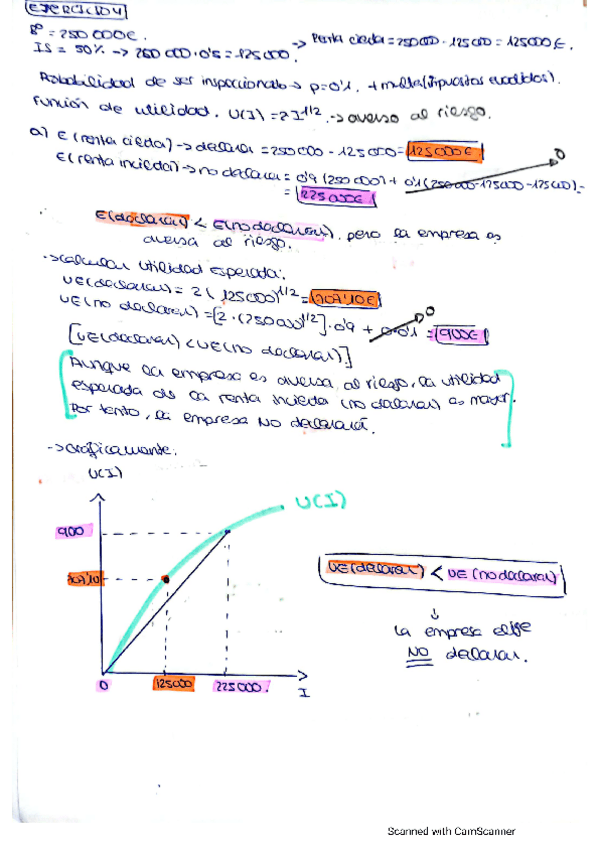 EJERCICIO 4
Bº = 250 000€.
IS = 50% -> 250 000 · 0'5 = 125000. -> Renta cierta = 250000 - 125000 = 125000€.
Probabilidad de ser inspeccionado -> p=0'1. + multa (impuestos evadidos).
Función de utilidad. U(I) = 2 I^1/2. -> averso al riesgo.
a) E (renta cierta) -> declarar = 250000 - 125000 = 125000€
E (renta incierta) -> no declarar = 0'9 (250 000) + 0'1 (250 000 - 125000 - 125000) = 0
= 225000€
E(declarar) < E(no declarar). pero la empresa es
aversa al riesgo.
-> calcular utilidad esperada:
UE(declarar) = 2 (125000)^1/2 = 707'10€
UE(no declarar) = [2 · (250000)^1/2] · 0'9 + 0·0'1 = 900€ 0
[UE(declarar) < UE(no declarar)]
Aunque la empresa es aversa al riesgo, la utilidad
esperada de la renta incierta (no declarar) es mayor.
Por tanto, la empresa NO declarará.
-> Gráficamente:
U(I)
U(I)
900
707'10
UE(declarar) < UE(no declarar)
↓
la empresa debe
NO declarar.
0 125000 225000. I
Scanned with CamScanner